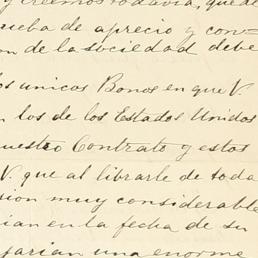 y creemos todavia, que de
rueba de aprecio y con-
on de la sociedad debe
os unicos Bonos en que V.
n los de los Estados Unidos
uestro Contrato y estos
V. que al librarle de toda
sion muy considerable
ian en la fecha de su
garian una enorme